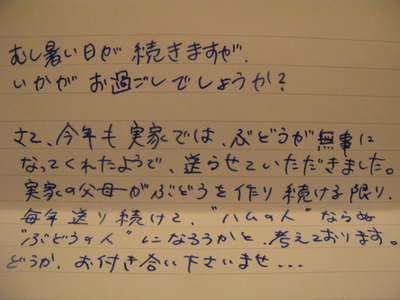 むし暑い日が 続きますが、
いかがお過ごしでしょうか?
さて、今年も 実家では、ぶどうが無事に
なってくれたようで、送らせていただきました。
実家の父母がぶどうを作り続ける限り、
毎年送り続けて、"ハムの人" ならぬ
"ぶどうの人" になろうかと、考えております。
どうか、お付き合い下さいませ...